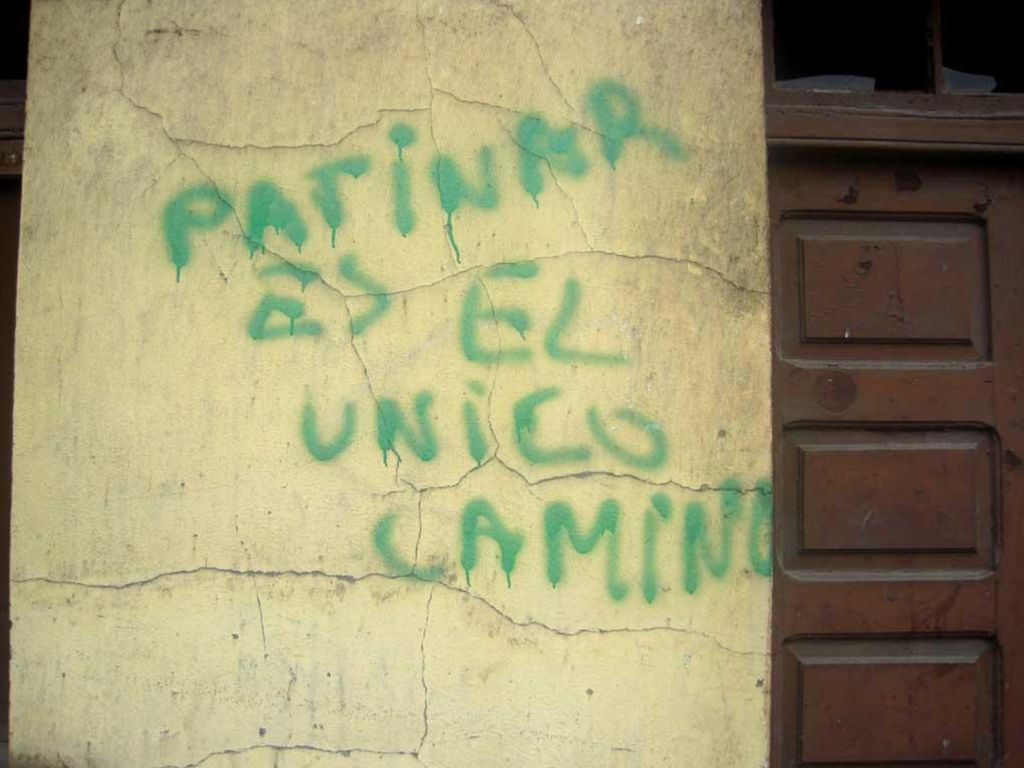 PATiNAR
ES EL
UNiCO
CAMINO